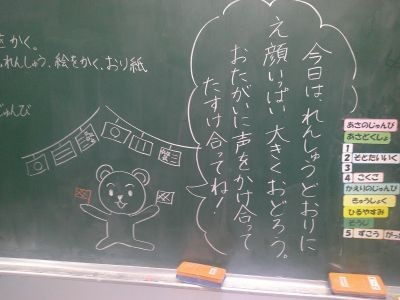 をかく。
れんしゅう、絵をかく、おり紙
じゅんび
今日は、れんしゅうどおりに
え顔いっぱい大きくおどろう。
おたがいに声をかけ合って
たすけ合ってね！
あさのじゅんび
あさどくしょ
1
2 そとたいいく
3
4 こくご
かえりのじゅんび
きゅうしょく
ひるやすみ
そうじ
5 ずこう